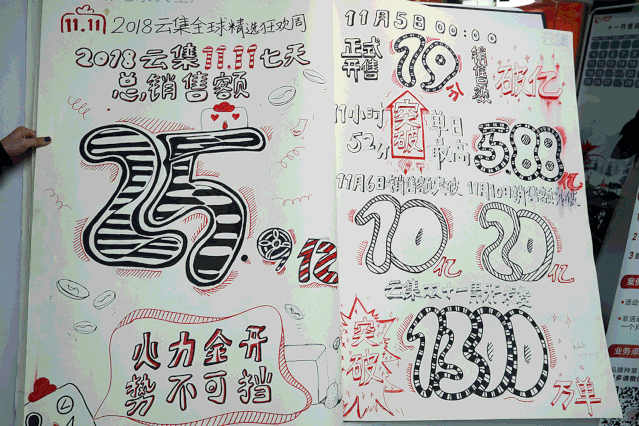 11.11 2018云集全球精选狂欢周
2018云集11.11七天
总销售额
25.9亿
火力全开
势不可挡
11月5日 00:00
正式开售 19分 销售总额 破亿
11小时52分 突破 单日最高 588亿
11月6日销售额突破
10亿
11月10日销售额突破
20亿
云集双十一累计
突破
1300万单